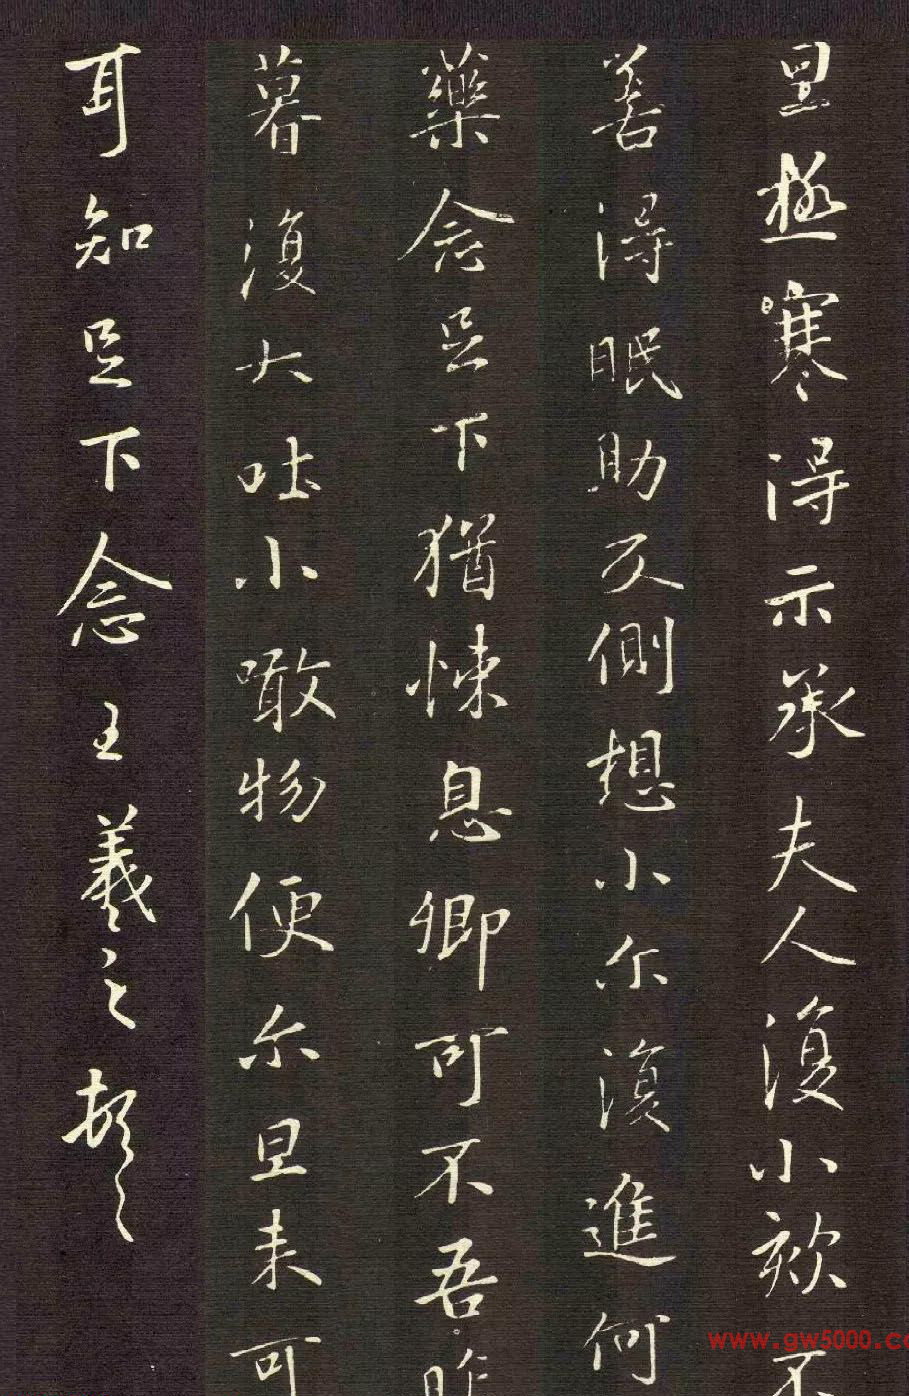 旦極寒得示承夫人復小欬不
善得眠助反側想小尔復進何
藥念足下猶悚息卿可不吾昨
暮復大吐小噉物便尔旦來可
耳知足下念王羲之頓首
www.gw5000.co